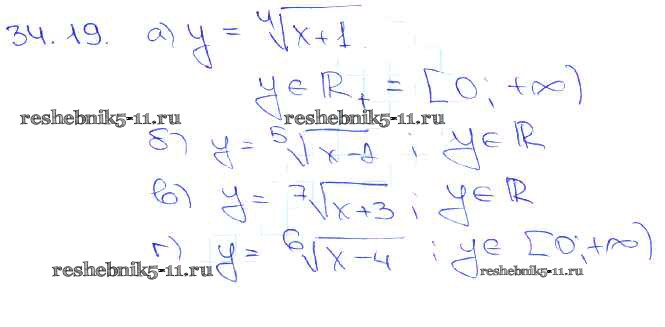 34.19. а) y = ⁴√(x+1)
y ∈ ℝ₊ = [0; +∞)
reshebnik5-11.ru reshebnik5-11.ru
б) y = ⁵√(x-1) ; y ∈ ℝ
в) y = ⁷√(x+3) ; y ∈ ℝ
г) y = ⁶√(x-4) ; y ∈ [0; +∞)
reshebnik5-11.ru reshebnik5-11.ru